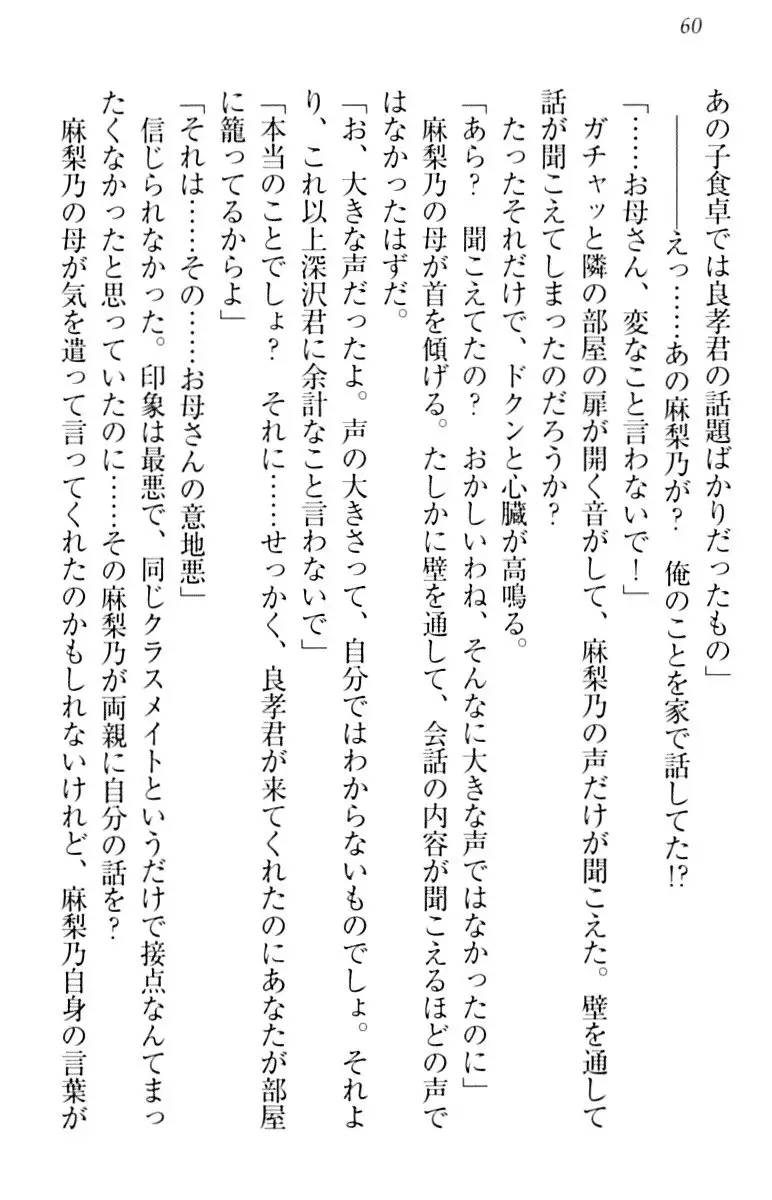 60
あの子食卓では良孝君の話題ばかりだったもの」
――えっ……あの麻梨乃が？　俺のことを家で話してた!?
「……お母さん、変なこと言わないで！」
ガチャッと隣の部屋の扉が開く音がして、麻梨乃の声だけが聞こえた。壁を通して
話が聞こえてしまったのだろうか？
たったそれだけで、ドクンと心臓が高鳴る。
「あら？　聞こえてたの？　おかしいわね、そんなに大きな声ではなかったのに」
麻梨乃の母が首を傾げる。たしかに壁を通して、会話の内容が聞こえるほどの声で
はなかったはずだ。
「お、大きな声だったよ。声の大きさって、自分ではわからないものでしょ。それよ
り、これ以上深沢君に余計なこと言わないで」
「本当のことでしょ？　それに……せっかく、良孝君が来てくれたのにあなたが部屋
に籠ってるからよ」
「それは……その……お母さんの意地悪」
信じられなかった。印象は最悪で、同じクラスメイトというだけで接点なんてまっ
たくなかったと思っていたのに……その麻梨乃が両親に自分の話を？
麻梨乃の母が気を遣って言ってくれたのかもしれないけれど、麻梨乃自身の言葉が